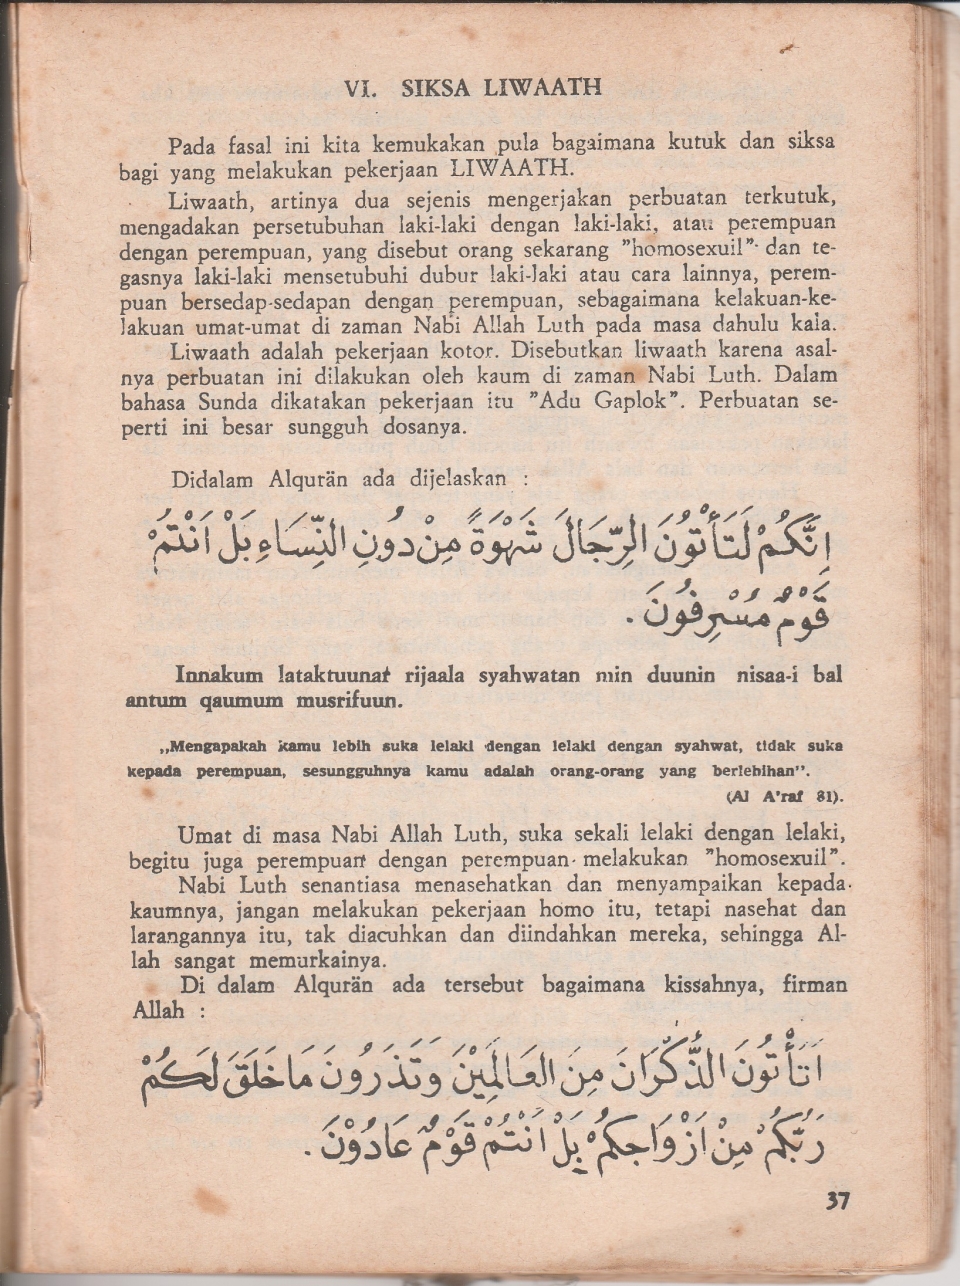 VI. SIKSA LIWAATH
Pada fasal ini kita kemukakan pula bagaimana kutuk dan siksa
bagi yang melakukan pekerjaan LIWAATH.
Liwaath, artinya dua sejenis mengerjakan perbuatan terkutuk,
mengadakan persetubuhan laki-laki dengan laki-laki, atau perempuan
dengan perempuan, yang disebut orang sekarang ”homosexuil” dan te-
gasnya laki-laki mensetubuhi dubur laki-laki atau cara lainnya, perem-
puan bersedap-sedapan dengan perempuan, sebagaimana kelakuan-ke-
lakuan umat-umat di zaman Nabi Allah Luth pada masa dahulu kala.
Liwaath adalah pekerjaan kotor. Disebutkan liwaath karena asal-
nya perbuatan ini dilakukan oleh kaum di zaman Nabi Luth. Dalam
bahasa Sunda dikatakan pekerjaan itu ”Adu Gaplok”. Perbuatan se-
perti ini besar sungguh dosanya.
Didalam Alqurän ada dijelaskan :
اِنَّكُمْ لَتَأْتُوْنَ الرِّجَالَ شَهْوَةً مِنْ دُونِ النِّسَاءِ بَلْ اَنْتُمْ
قَوْمٌ مُسْرِفُونَ .
Innakum lataktuunat rijaala syahwatan min duunin nisaa-i bal
antum qaumum musrifuun.
„Mengapakah kamu lebih suka lelaki dengan lelaki dengan syahwat, tidak suka
kepada perempuan, sesungguhnya kamu adalah orang-orang yang berlebihan”.
(Al A'raf 81).
Umat di masa Nabi Allah Luth, suka sekali lelaki dengan lelaki,
begitu juga perempuan dengan perempuan melakukan ”homosexuil”.
Nabi Luth senantiasa menasehatkan dan menyampaikan kepada
kaumnya, jangan melakukan pekerjaan homo itu, tetapi nasehat dan
larangannya itu, tak diacuhkan dan diindahkan mereka, sehingga Al-
lah sangat memurkainya.
Di dalam Alqurän ada tersebut bagaimana kissahnya, firman
Allah :
اَتَأْتُونَ الذُّكْرَانَ مِنَ الْعَالَمِيْنَ وَتَذَرُونَ مَا خَلَقَ لَكُمْ
رَبُّكُمْ مِنْ اَزْوَاجِكُمْ بَلْ اَنْتُمْ قَوْمٌ عَادُوْنَ .
37